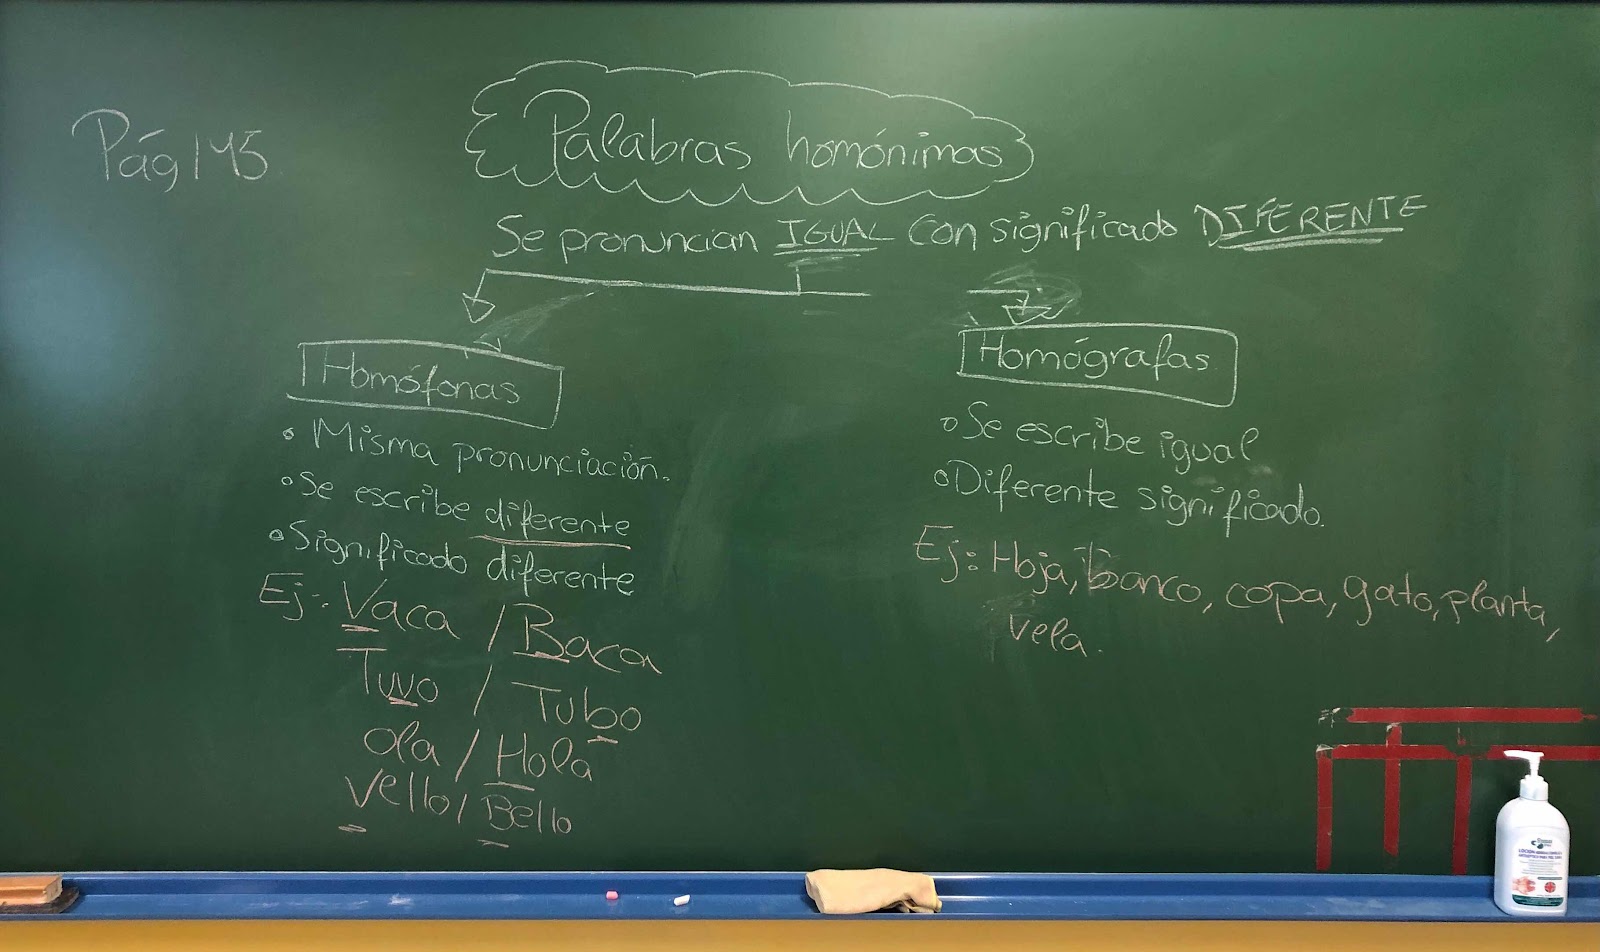 Pág 145
Palabras homónimas
Se pronuncian IGUAL con significado DIFERENTE
Homófonas
• Misma pronunciación.
• Se escribe diferente
• Significado diferente
Ej: Vaca / Baca
Tuvo / Tubo
Ola / Hola
Vello / Bello
Homógrafas
• Se escribe igual
• Diferente significado.
Ej: Hoja, banco, copa, gato, planta,
vela.